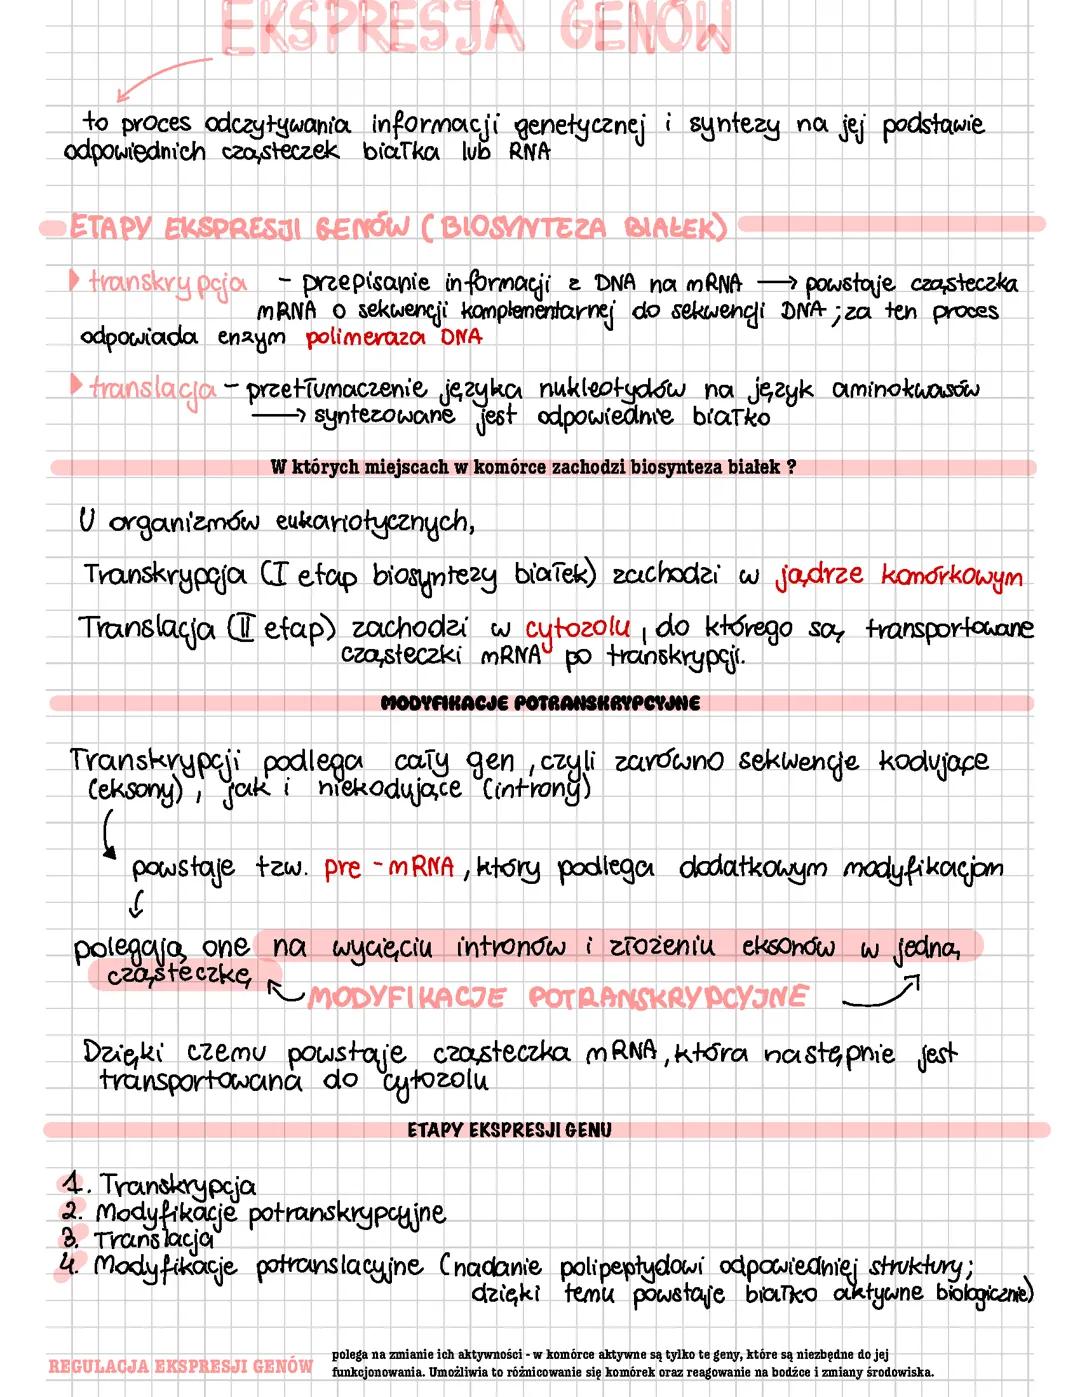 EKSPRESJA GENÓW
to proces odczytywania informacji genetycznej i syntezy na jej podstawie
odpowiednich cząsteczek białka lub RNA
ETAPY EKSPRESJI GENÓW (BIOSYNTEZA BIAŁEK)
transkrypcja - przepisanie informacji z DNA na mRNA → powstaje cząsteczka
mRNA o sekwencji komplementarnej do sekwencji DNA ; za ten proces
odpowiada enzym polimeraza DNA
translacja - przetłumaczenie języka nukleotydów na język aminokwasów
→ syntezowane jest odpowiednie białko
W których miejscach w komórce zachodzi biosynteza białek ?
U organizmów eukariotycznych,
Transkrypcja (I etap biosyntezy białek) zachodzi w jądrze komórkowym
Translacja (II etap) zachodzi w cytozolu, do którego są transportowane
cząsteczki mRNA po transkrypcji.
MODYFIKACJE POTRANSKRYPCYJNE
Transkrypcji podlega cały gen, czyli zarówno sekwencje kodujące
(eksony), jak i niekodujące (introny)
powstaje tzw. pre-mRNA, który podlega dodatkowym modyfikacjom
polegają one na wycięciu intronów i złożeniu eksonów w jedną
cząsteczkę
MODYFIKACJE POTRANSKRYPCYJNE
Dzięki czemu powstaje cząsteczka mRNA, która następnie jest
transportowana do cytozolu
ETAPY EKSPRESJI GENU
1. Transkrypcja
2. Modyfikacje potranskrypcyjne
3. Translacja
4. Modyfikacje potranslacyjne (nadanie polipeptydowi odpowiedniej struktury;
dzięki temu powstaje białko aktywne biologicznie)
REGULACJA EKSPRESJI GENÓW polega na zmianie ich aktywności - w komórce aktywne są tylko te geny, które są niezbędne do jej
funkcjonowania. Umożliwia to różnicowanie się komórek oraz reagowanie na bodźce i zmiany środowiska.